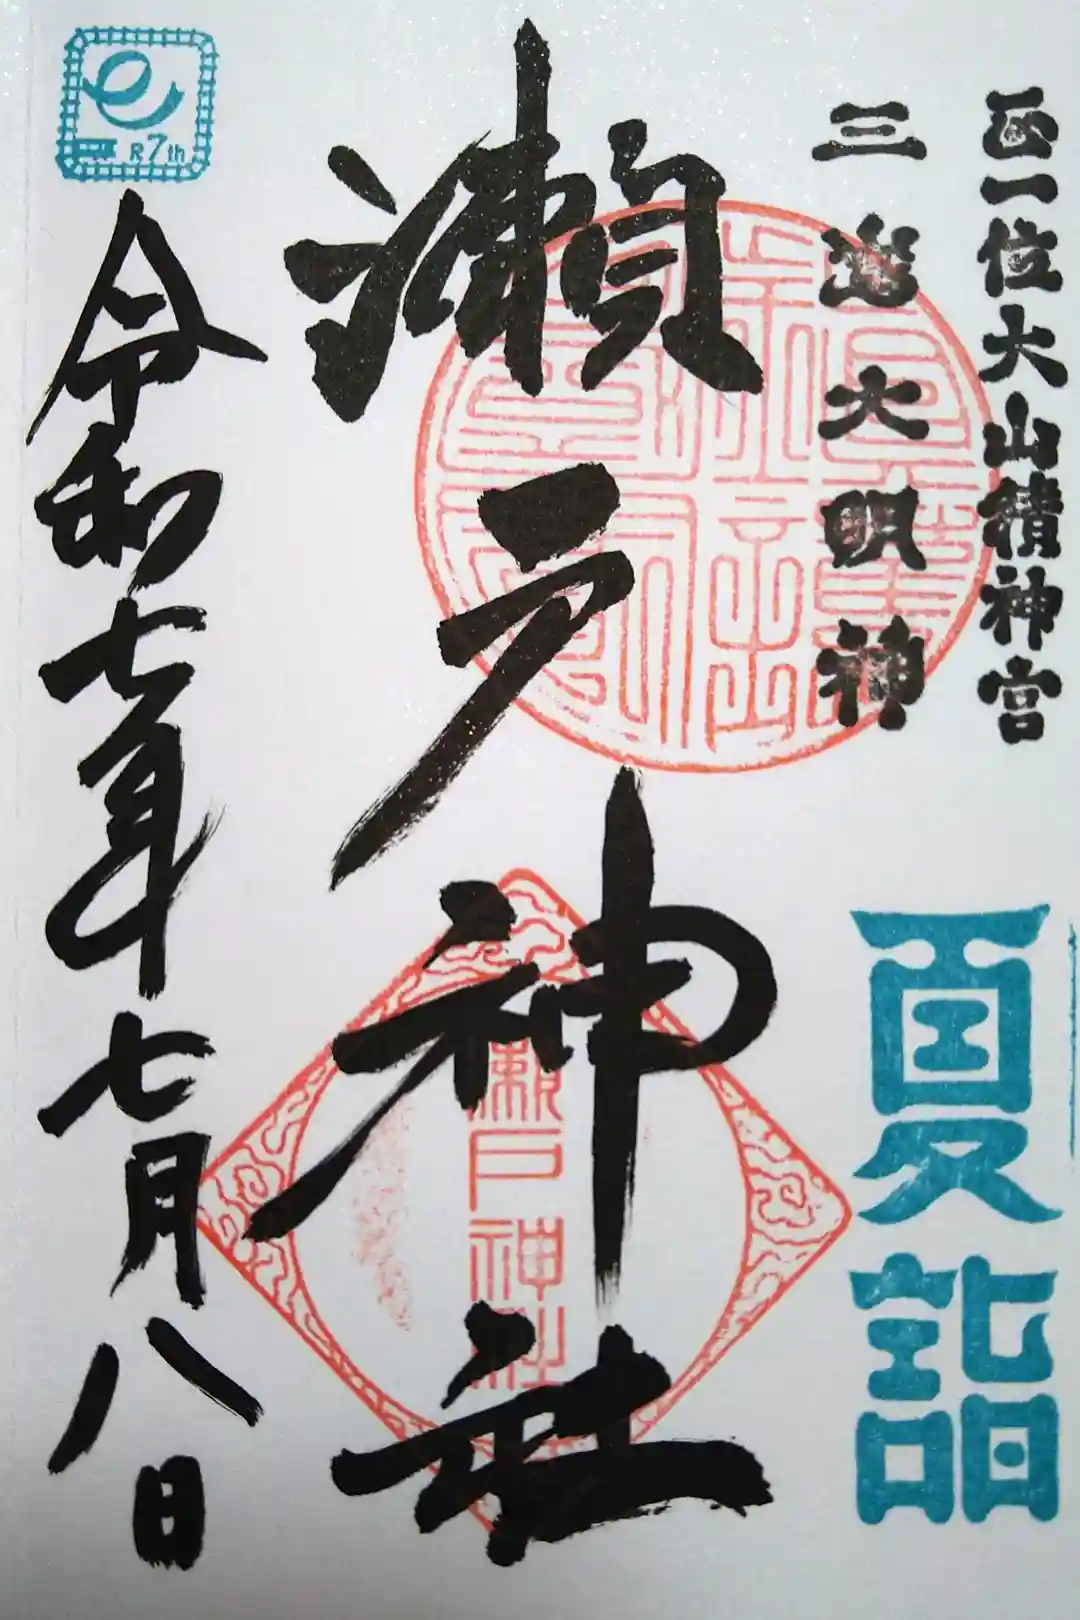 正一位大山積神宮
三嶌大明神
夏詣
瀬戸神社
瀬戸神社
令和七年七月八日
R7th